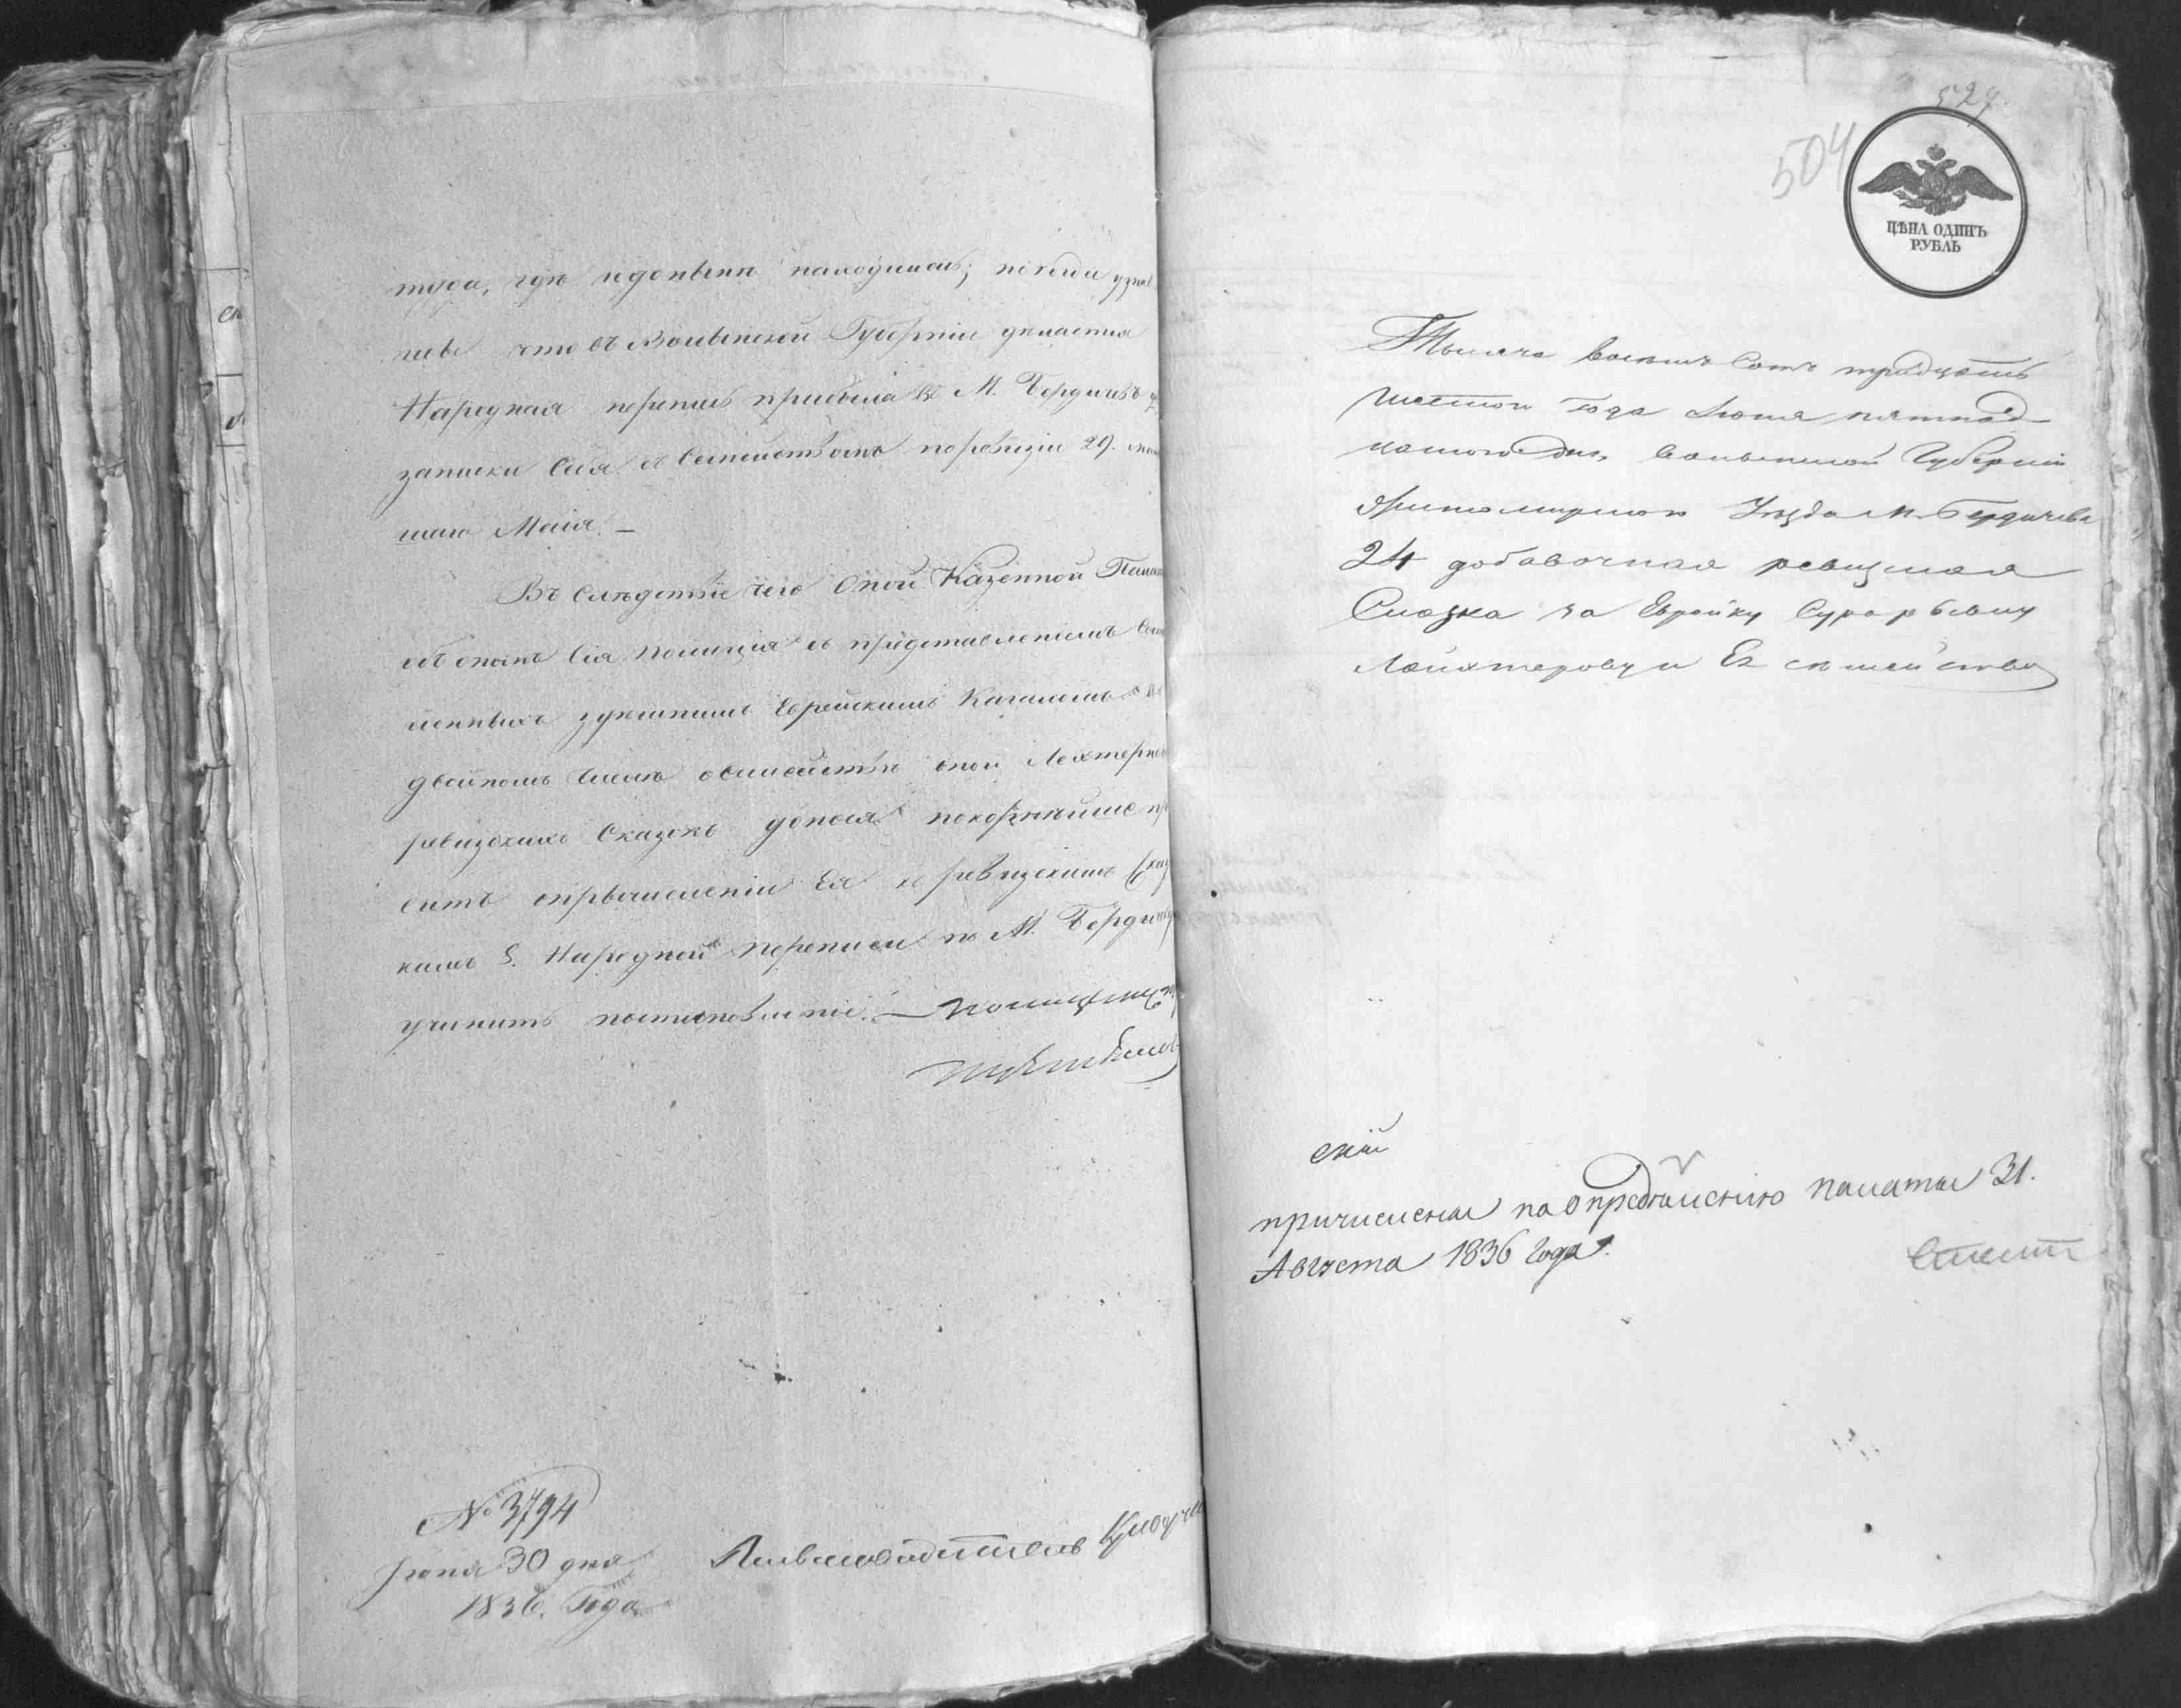 туда, где и доныне находилась; но когда узнав
что въ Волынской Губернiи делается
Народная перепись прибыла въ М. Бердичевъ
записки себя съ семействомъ по ревизiи 29.
шаго Маiя. —
Въ следствiе чего Оной Казенной Палат
объ ономъ сiя полицiя съ представленiемъ
здешнимъ Еврейскимъ Кагаломъ въ
двойномъ числе о семействе оной Лехтерко
ревизскихъ сказокъ донося покорнейше пр
ситъ о причисленiи Ея къ ревизскимъ сказ
камъ 8. Народной переписи по М. Бердичеву
учинить постановленiе. — Полицмей
№ 3794
Iюня 30 дня
1836. Года
Письмоводитель
527.
504
ЦѢНА ОДИНЪ
РУБЛЬ
Тысяча восемь сотъ тридцать
шестого года Iюня пятнад
цатого дня, Волынской Губернiи
Житомирского Уезда М. Бердичева
24 добавочная ревизская
Сказка за Еврейку Сура
Лайхтерову и Ея семейство
скiй
причислены по определенiю палаты 31.
Августа 1836 года.